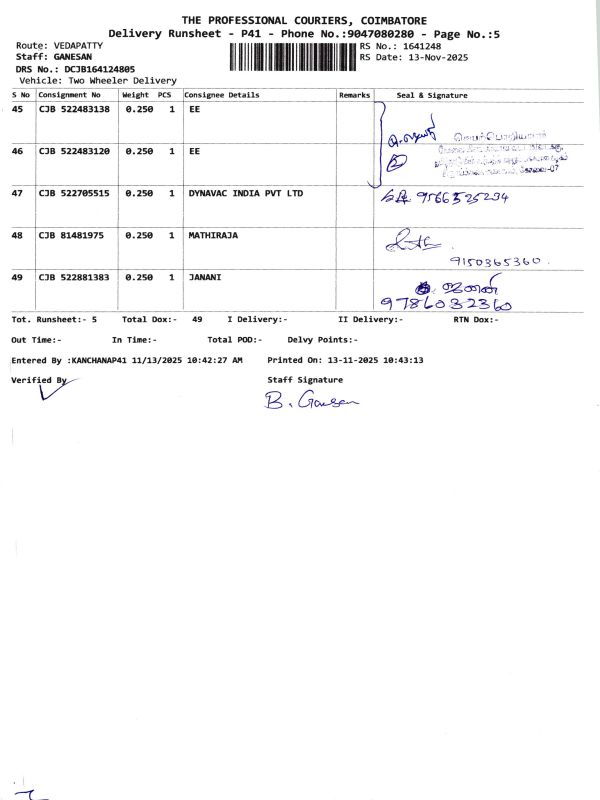 THE PROFESSIONAL COURIERS, COIMBATORE
Delivery Runsheet - P41 - Phone No.:9047080280 - Page No.:5
Route: VEDAPATTY
RS No.: 1641248
Staff: GANESAN
RS Date: 13-Nov-2025
DRS No.: DCJB164124805
Vehicle: Two Wheeler Delivery
S No Consignment No Weight PCS Consignee Details Remarks Seal & Signature
45 CJB 522483138 0.250 1 EE
46 CJB 522483120 0.250 1 EE
47 CJB 522705515 0.250 1 DYNAVAC INDIA PVT LTD 9566525234
48 CJB 81481975 0.250 1 MATHIRAJA
9150365360.
49 CJB 522881383 0.250 1 JANANI ஜனனி
9786032360
Tot. Runsheet:- 5 Total Dox:- 49 I Delivery:- II Delivery:- RTN Dox:-
Out Time:- In Time:- Total POD:- Delvy Points:-
Entered By :KANCHANAP41 11/13/2025 10:42:27 AM Printed On: 13-11-2025 10:43:13
Verified By Staff Signature
B. Ganesan